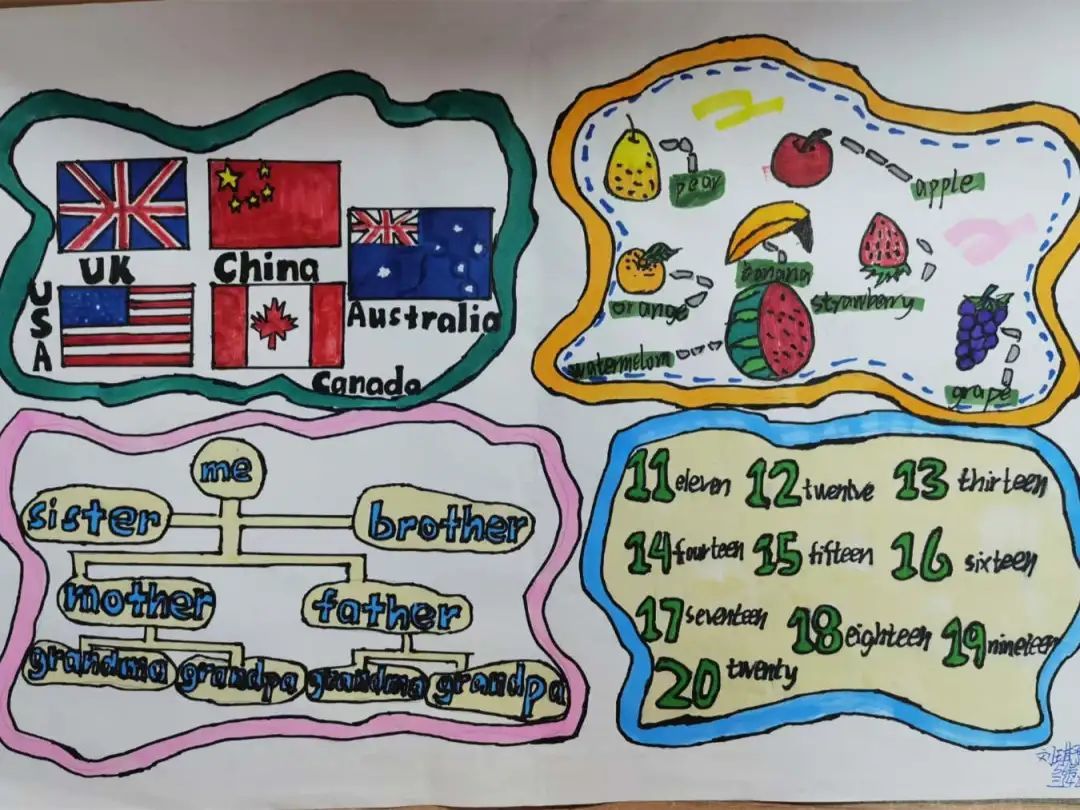 UK
China
USA
Australia
Canada
pear
apple
orange
banana
strawberry
watermelom
grape
me
sister
brother
mother
father
grandma
grandpa
grandma
grandpa
11 eleven
12 twentve
13 thirteen
14 fourteen
15 fifteen
16 sixteen
17 seventeen
18 eighteen
19 nineteen
20 twenty